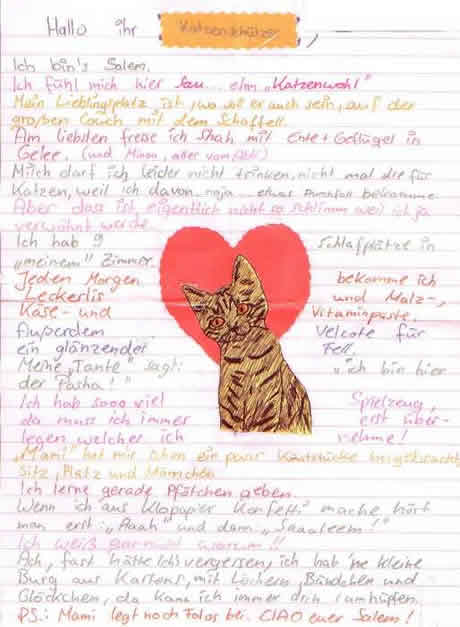 Hallo ihr Katzenschützer,
Ich bin's Salem.
Ich fühl mich hier Sau... ehm „Katzenwohl"
Mein Lieblingsplatz ist, wo soll er auch sein, auf der
großen Couch mit dem Schaffell.
Am liebsten fresse ich Shah mit Ente + Geflügel in
Gelee. (und Minon, aber vom Aldi)
Milch darf ich leider nicht trinken, nicht mal die für
Katzen, weil ich davon naja... etwas Durchfall bekomme.
Aber dass ist eigentlich nicht so schlimm weil ich ja
verwöhnt werde
Ich hab 9 Schlafplätze in
„meinem" Zimmer.
Jeden Morgen bekomme ich
Leckerlis und Malz-,
Käse- und Vitaminpaste.
Außerdem Velcote für
ein glänzendes Fell.
Meine „Tante" sagt: „ich bin hier
der Pasha!"
Ich hab sooo viel Spielzeug,
da muss ich immer erst über-
legen welches ich nehme!
„Mami" hat mir schon ein paar Kunststücke beigebracht
Sitz, Platz und Männchen
Ich lerne gerade Pfötchen geben.
Wenn ich aus Klopapier Konfetti mache hört
man erst: „Aaah" und dann: „Saaaleem!"
Ich weiß gar nicht warum!!
Ach, fast hätte ich's vergessen, ich hab 'ne kleine
Burg aus Kartons, mit Löchern, Bändchen und
Glöckchen, da kann ich immer drin rumhüpfen.
PS.: Mami legt noch Fotos bei. CIAO euer Salem!